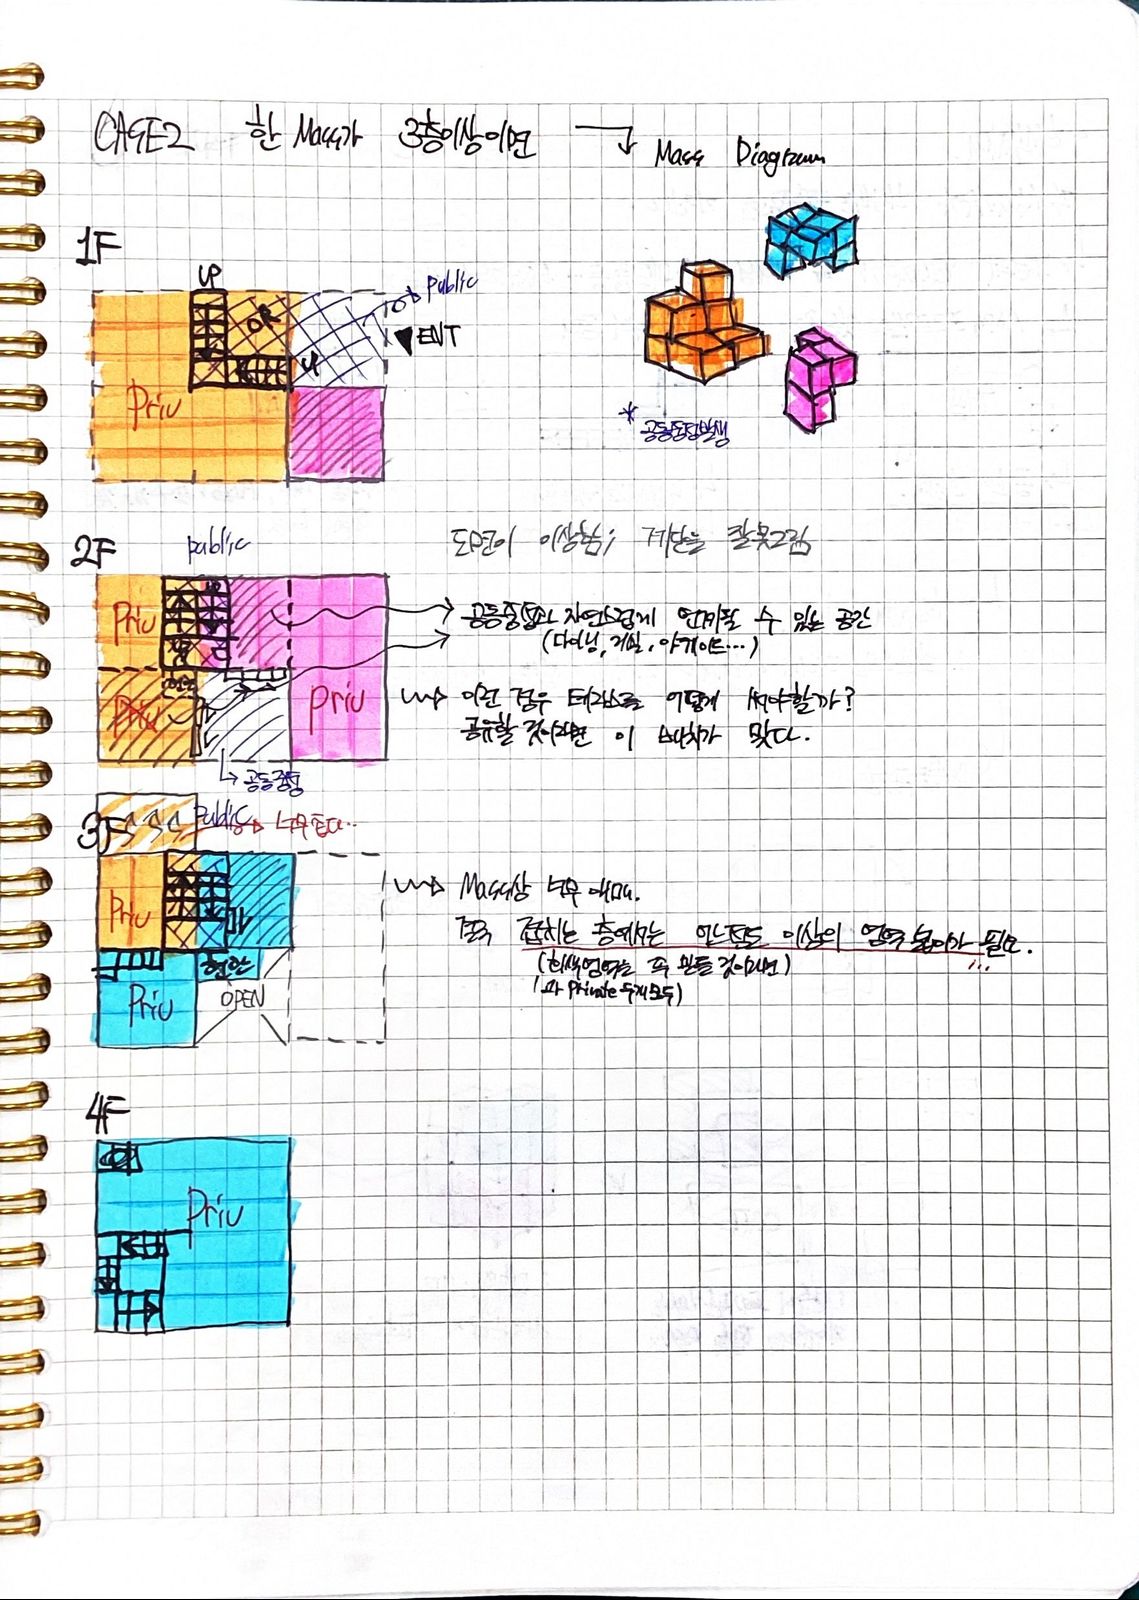 CASE2 한 Mass가 3층이상이면
Mass Diagram
1F
UP
Public
OR
ENT
UP
Priv
*공동동정발생
2F
public
도면이 이상함; 계단을 잘못그림
Priv
공동중정과 자연스럽게 연계될 수 있는 공간
(다이닝, 거실, 야케이드...)
Priv
Priv
이런 경우 테라스로 어떻게 써야할까?
공유할 것이라면 이 위치가 맞다.
공동중정
3F
Public
너무 좁다..
Priv
Mass상 너무 애매.
결국 겹치는 층에서는 어느정도 이상의 영역 넓이가 필요.
(흰색영역은 꼭 만들 것이라면)
(과 Private 두개 모두)
현관
Priv
OPEN
4F
Priv